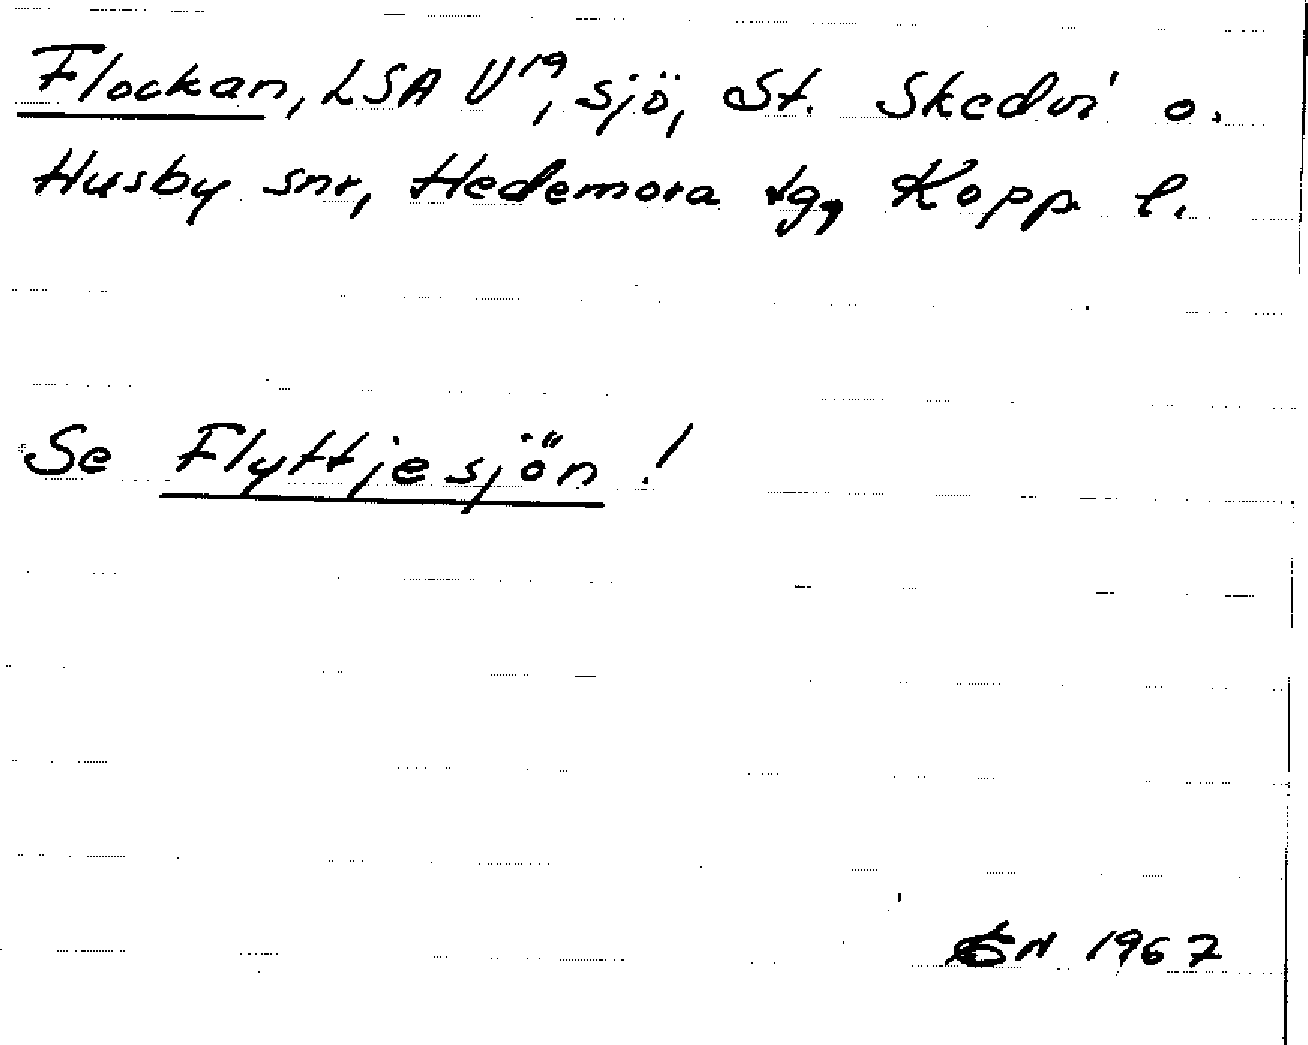 Flockan, LSA U¹⁹, sjö, St. Skedvi o.
Husby snr, Hedemora tg, Kopp. l.
Se Flyttjesjön!
1967